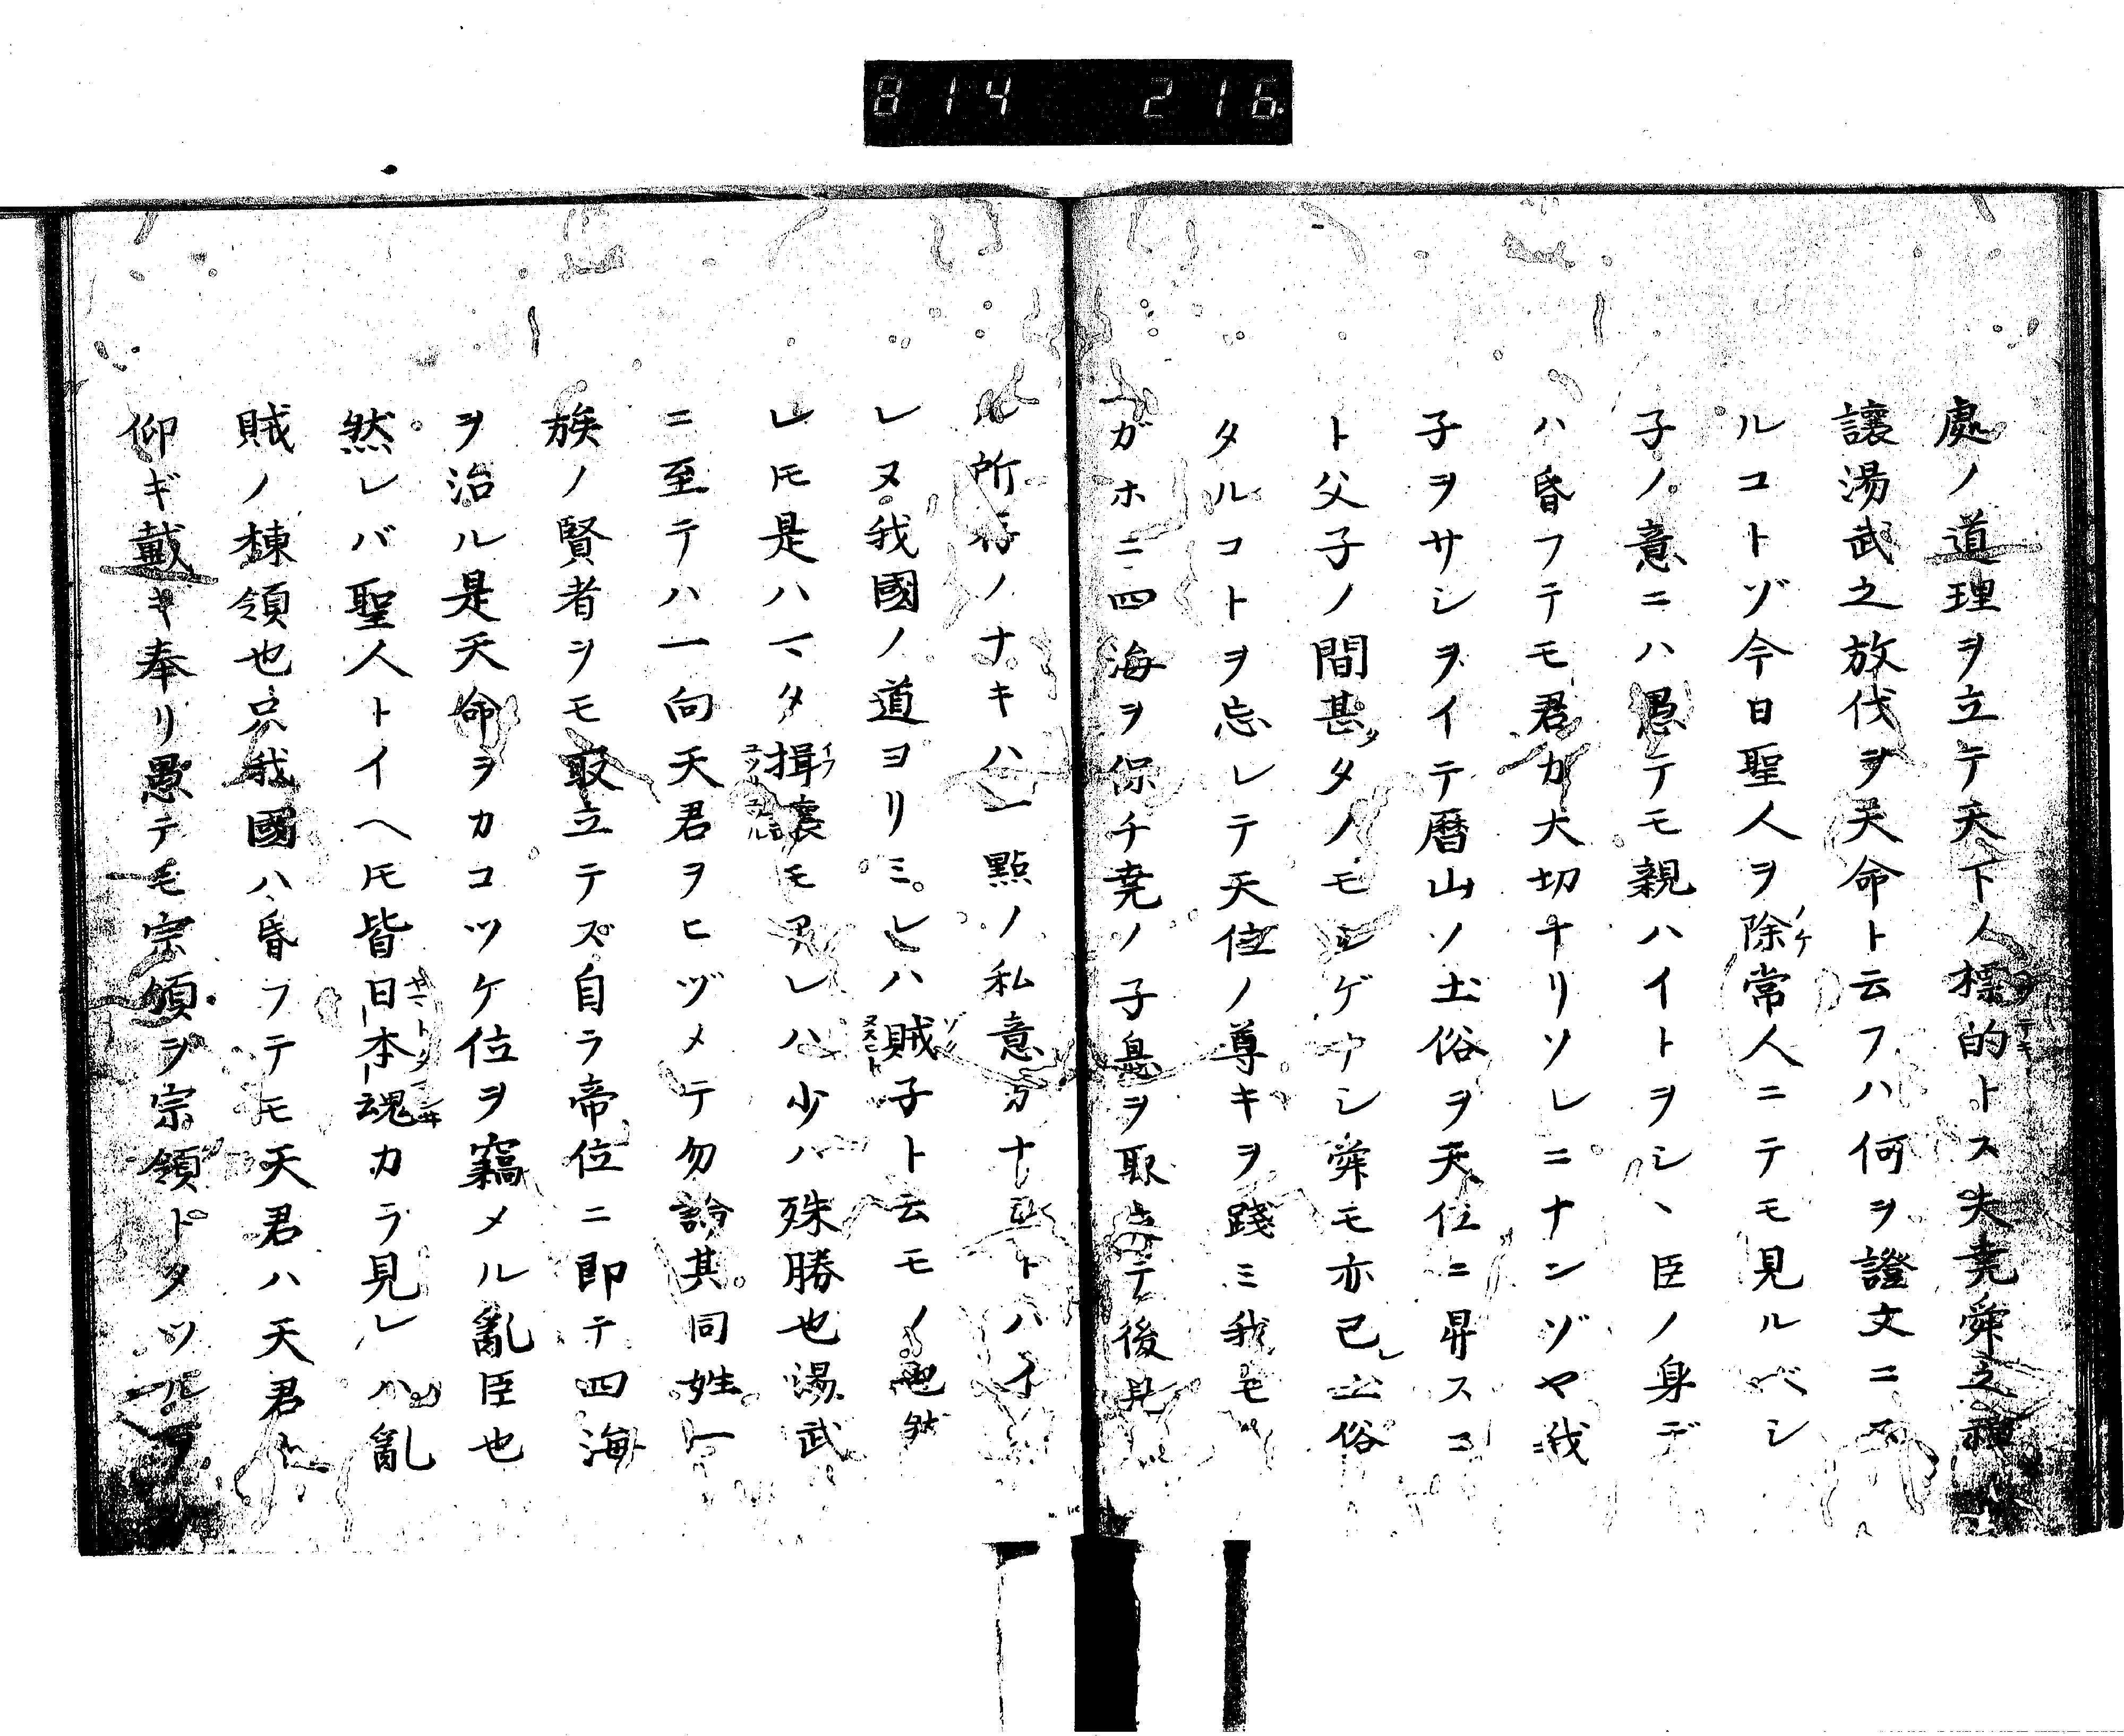 814 216
處ノ道理ヲ立テ天下ノ標的トス夫堯舜之禪
讓湯武之放伐ヲ天命ト云フハ何ヲ證文ニス
ルコトゾ今日聖人ヲ除ノケ常人ニテモ見ルベシ
子ノ意ニハ愚テモ親ハイトヲシヽ臣ノ身デ
ハ昏フテモ君カ大切ナリソレニナンゾヤ我
子ヲサシヲイテ曆山ノ土俗ヲ天位ニ昇スコ
ト父子ノ間甚タノモシゲナシ舜モ亦己レ土俗
タルコトヲ忘レテ天位ノ尊キヲ踐ミ我モ
ガホニ四海ヲ保チ堯ノ子息ヲ取立テ後見
ル所存ノナキハ一點ノ私意ナ トハイ
レヌ我國ノ道ヨリミレハ賊ヌスヒト子ト云モノ也然
レ𪜈是ハマタ揖讓モアレハ少ハ殊勝也湯武
ニ至テハ一向天君ヲヒヅメテ勿論其同姓一
族ノ賢者ヲモ取立テズ自ラ帝位ニ即テ四海
ヲ治ル是天命ヲカコツケ位ヲ竊メル亂臣也
然レバ聖人トイヘ𪜈皆日本魂カラ見レハ亂
賊ノ棟領也只我國ハ昏フテモ天君ハ天君ト
仰ギ戴キ奉リ愚テモ宗領ヲ宗領トタツル